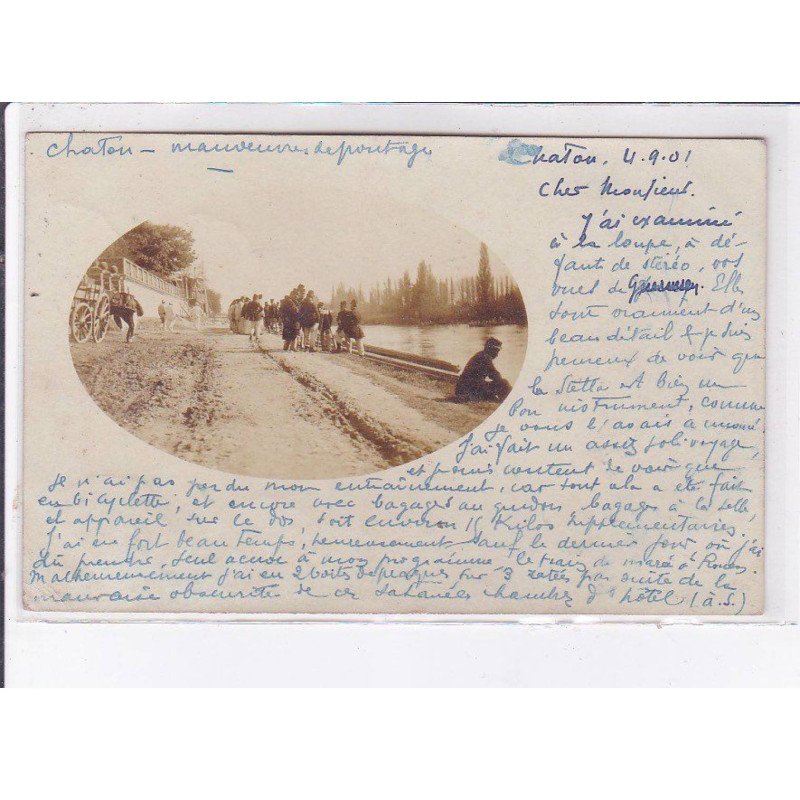 Chatou - manœuvres de pontage
Chatou, 4.9.01
Cher Monsieur.
J'ai examiné
à la loupe, à dé-
faut de stéréo, vos
vues de Guernesey. Elles
sont vraiment d'un
beau détail & je suis
heureux de voir que
la Stella est bien un
bon instrument, comme
je vous l'avais annoncé
J'ai fait un assez joli voyage,
et suis content de voir que
Je n'ai pas perdu mon entraînement, car tout cela a été fait
en bicyclette, et encore avec bagages au guidon, bagages à la selle,
et appareil sur le dos, soit environ 15 Kilos supplémentaires.
J'ai eu fort beau temps, heureusement sauf le dernier jour où j'ai
dû prendre, seul accroc à mon programme, le train de marée à
Malheureusement j'ai eu 2 boîtes de plaques sur 3 ratées par suite de la
mauvaise obscurité de ces satanées chambres d'hôtel (à.S.)